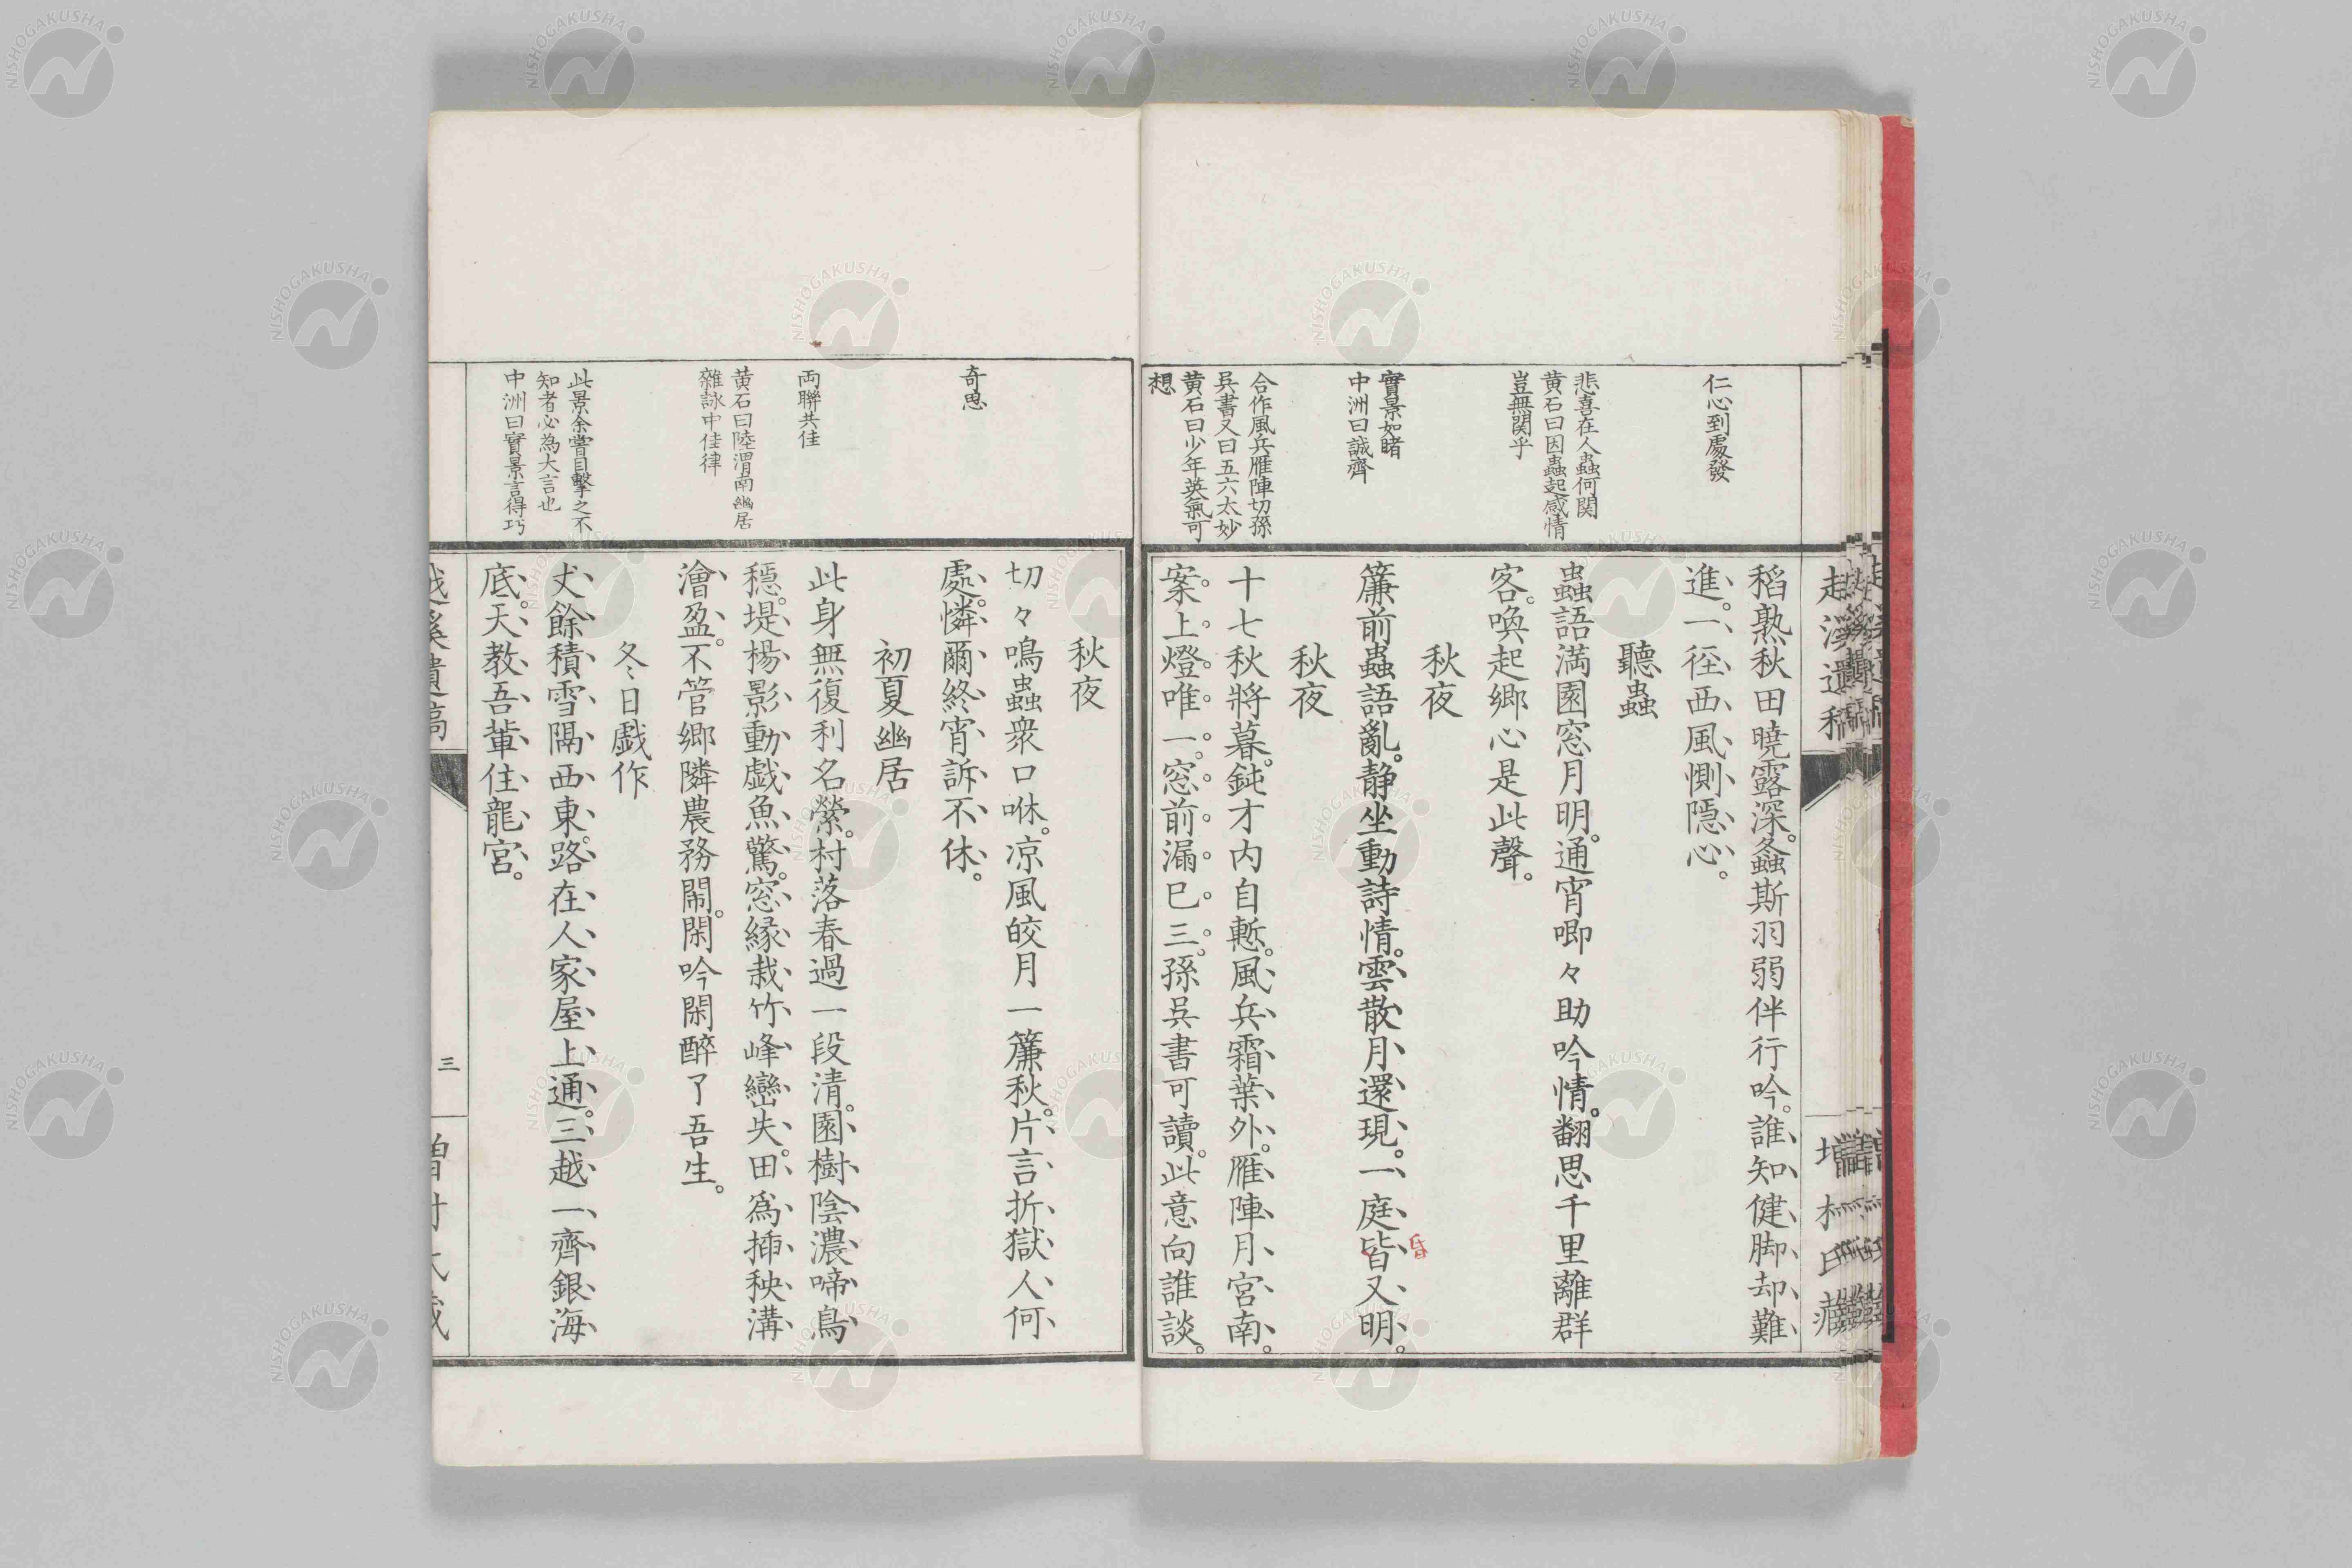 仁心到處發
悲喜在人蟲何関
黄石曰因蟲起感情
豈無関乎
實景如睹
中洲曰誠齊
合作風兵雁陣切孫
吳書又曰五六太妙
黄石曰少年英氣可
想
稻熟秋田曉露深。螽斯羽弱伴行吟。誰知健脚却難
進。一徑西風惻隱心。
聽蟲
蟲語満園窓月明。通宵喞々助吟情。翻思千里離群
客。喚起鄉心是此聲。
秋夜
簾前蟲語亂。静坐動詩情。雲散月還現。一庭皆又明。
秋夜
十七秋將暮。鈍才内自慙。風兵霜葉外。雁陣月宮南。
案上燈唯一。窓前漏已三。孫吳書可讀。此意向誰談。
奇思
両聯共佳
黄石曰陸渭南幽居
雜詠中佳律
此景余嘗目擊之不
知者必為大言也
中洲曰實景言得巧
秋夜
切々鳴蟲衆口咻。凉風皎月一簾秋。片言折獄人何
處。憐爾終宵訴不休。
初夏幽居
此身無復利名縈。村落春過一段清。園樹陰濃啼鳥
穩。堤楊影動戯魚驚。窓縁栽竹峰巒失。田爲挿秧溝
澮盈。不管鄉隣農務閙。閑吟閑醉了吾生。
冬日戯作
丈餘積雪隔西東。路在人家屋上通。三越一齊銀海
底。天教吾輩住龍宮。
三
NISHOGAKUSHA